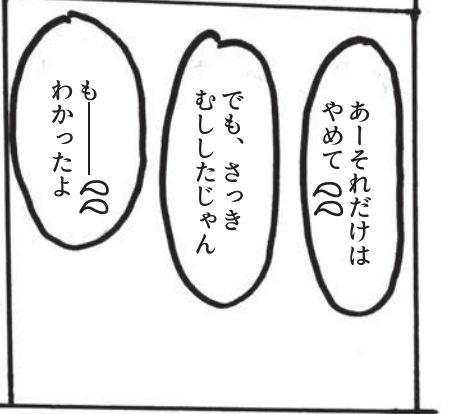 あーそれだけは
やめて
でも、さっき
むししたじゃん
も――
わかったよ